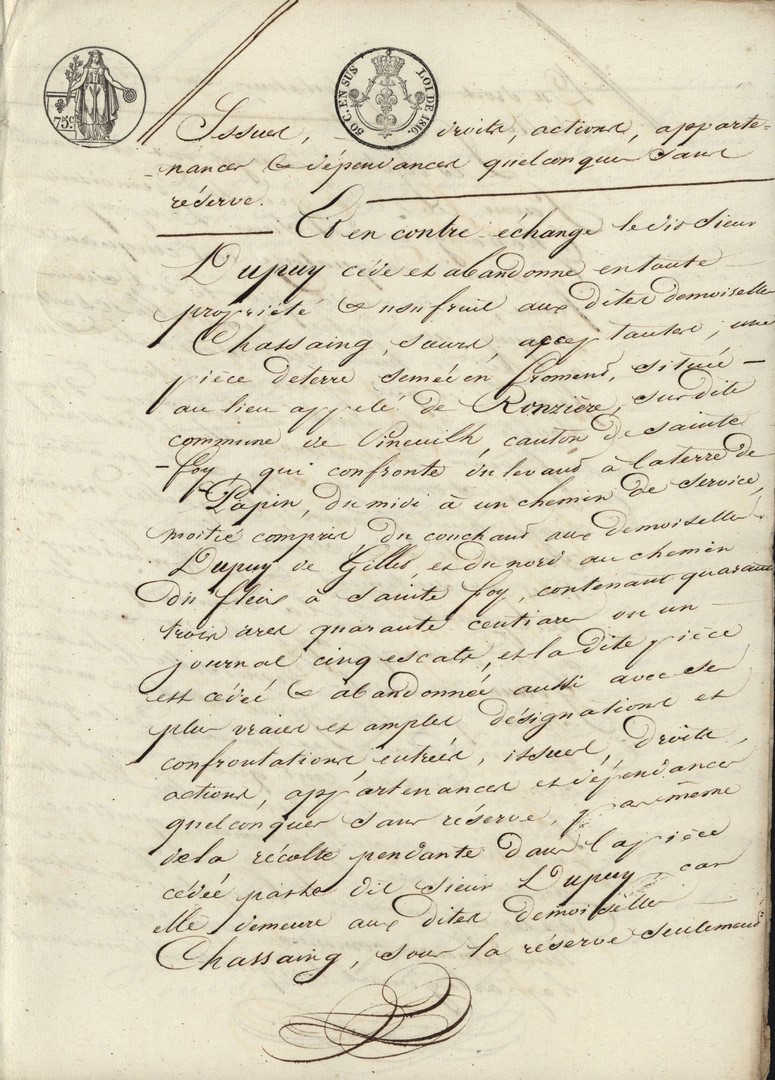 75c.
50 C. EN SUS LOI DE 1816.
Issues, droits, actions, apparte=
nances & dépendances quelconques sans
réserve.
Et en contre-échange le dit sieur
Dupuy cède et abandonne en toute
propriété & usufruit aux dites demoiselles
Chassaing, sœurs, acceptantes, une
pièce de terre semée en froment, située
au lieu appelé de Ronzière, susdite
commune de Pineuilh, canton de Sainte
foy, qui confronte du levant à la terre de
Papin, du midi à un chemin de service,
moitié compris du couchant aux demoiselles
Dupuy de Gilles et du nord au chemin
du fleix à Sainte foy, contenant quarante
trois ares quarante centiares ou un
journal cinq escats, et la dite pièce
est cédée & abandonnée aussi avec ses
plus vraies et amples désignations et
confrontations, entrées, issues, droits,
actions, appartenances et dépendances
quelconques sans réserve, pas même
de la récolte pendante dans la pièce
cédée par le dit sieur Dupuy, car
elle demeure aux dites demoiselles
Chassaing, sous la réserve seulement